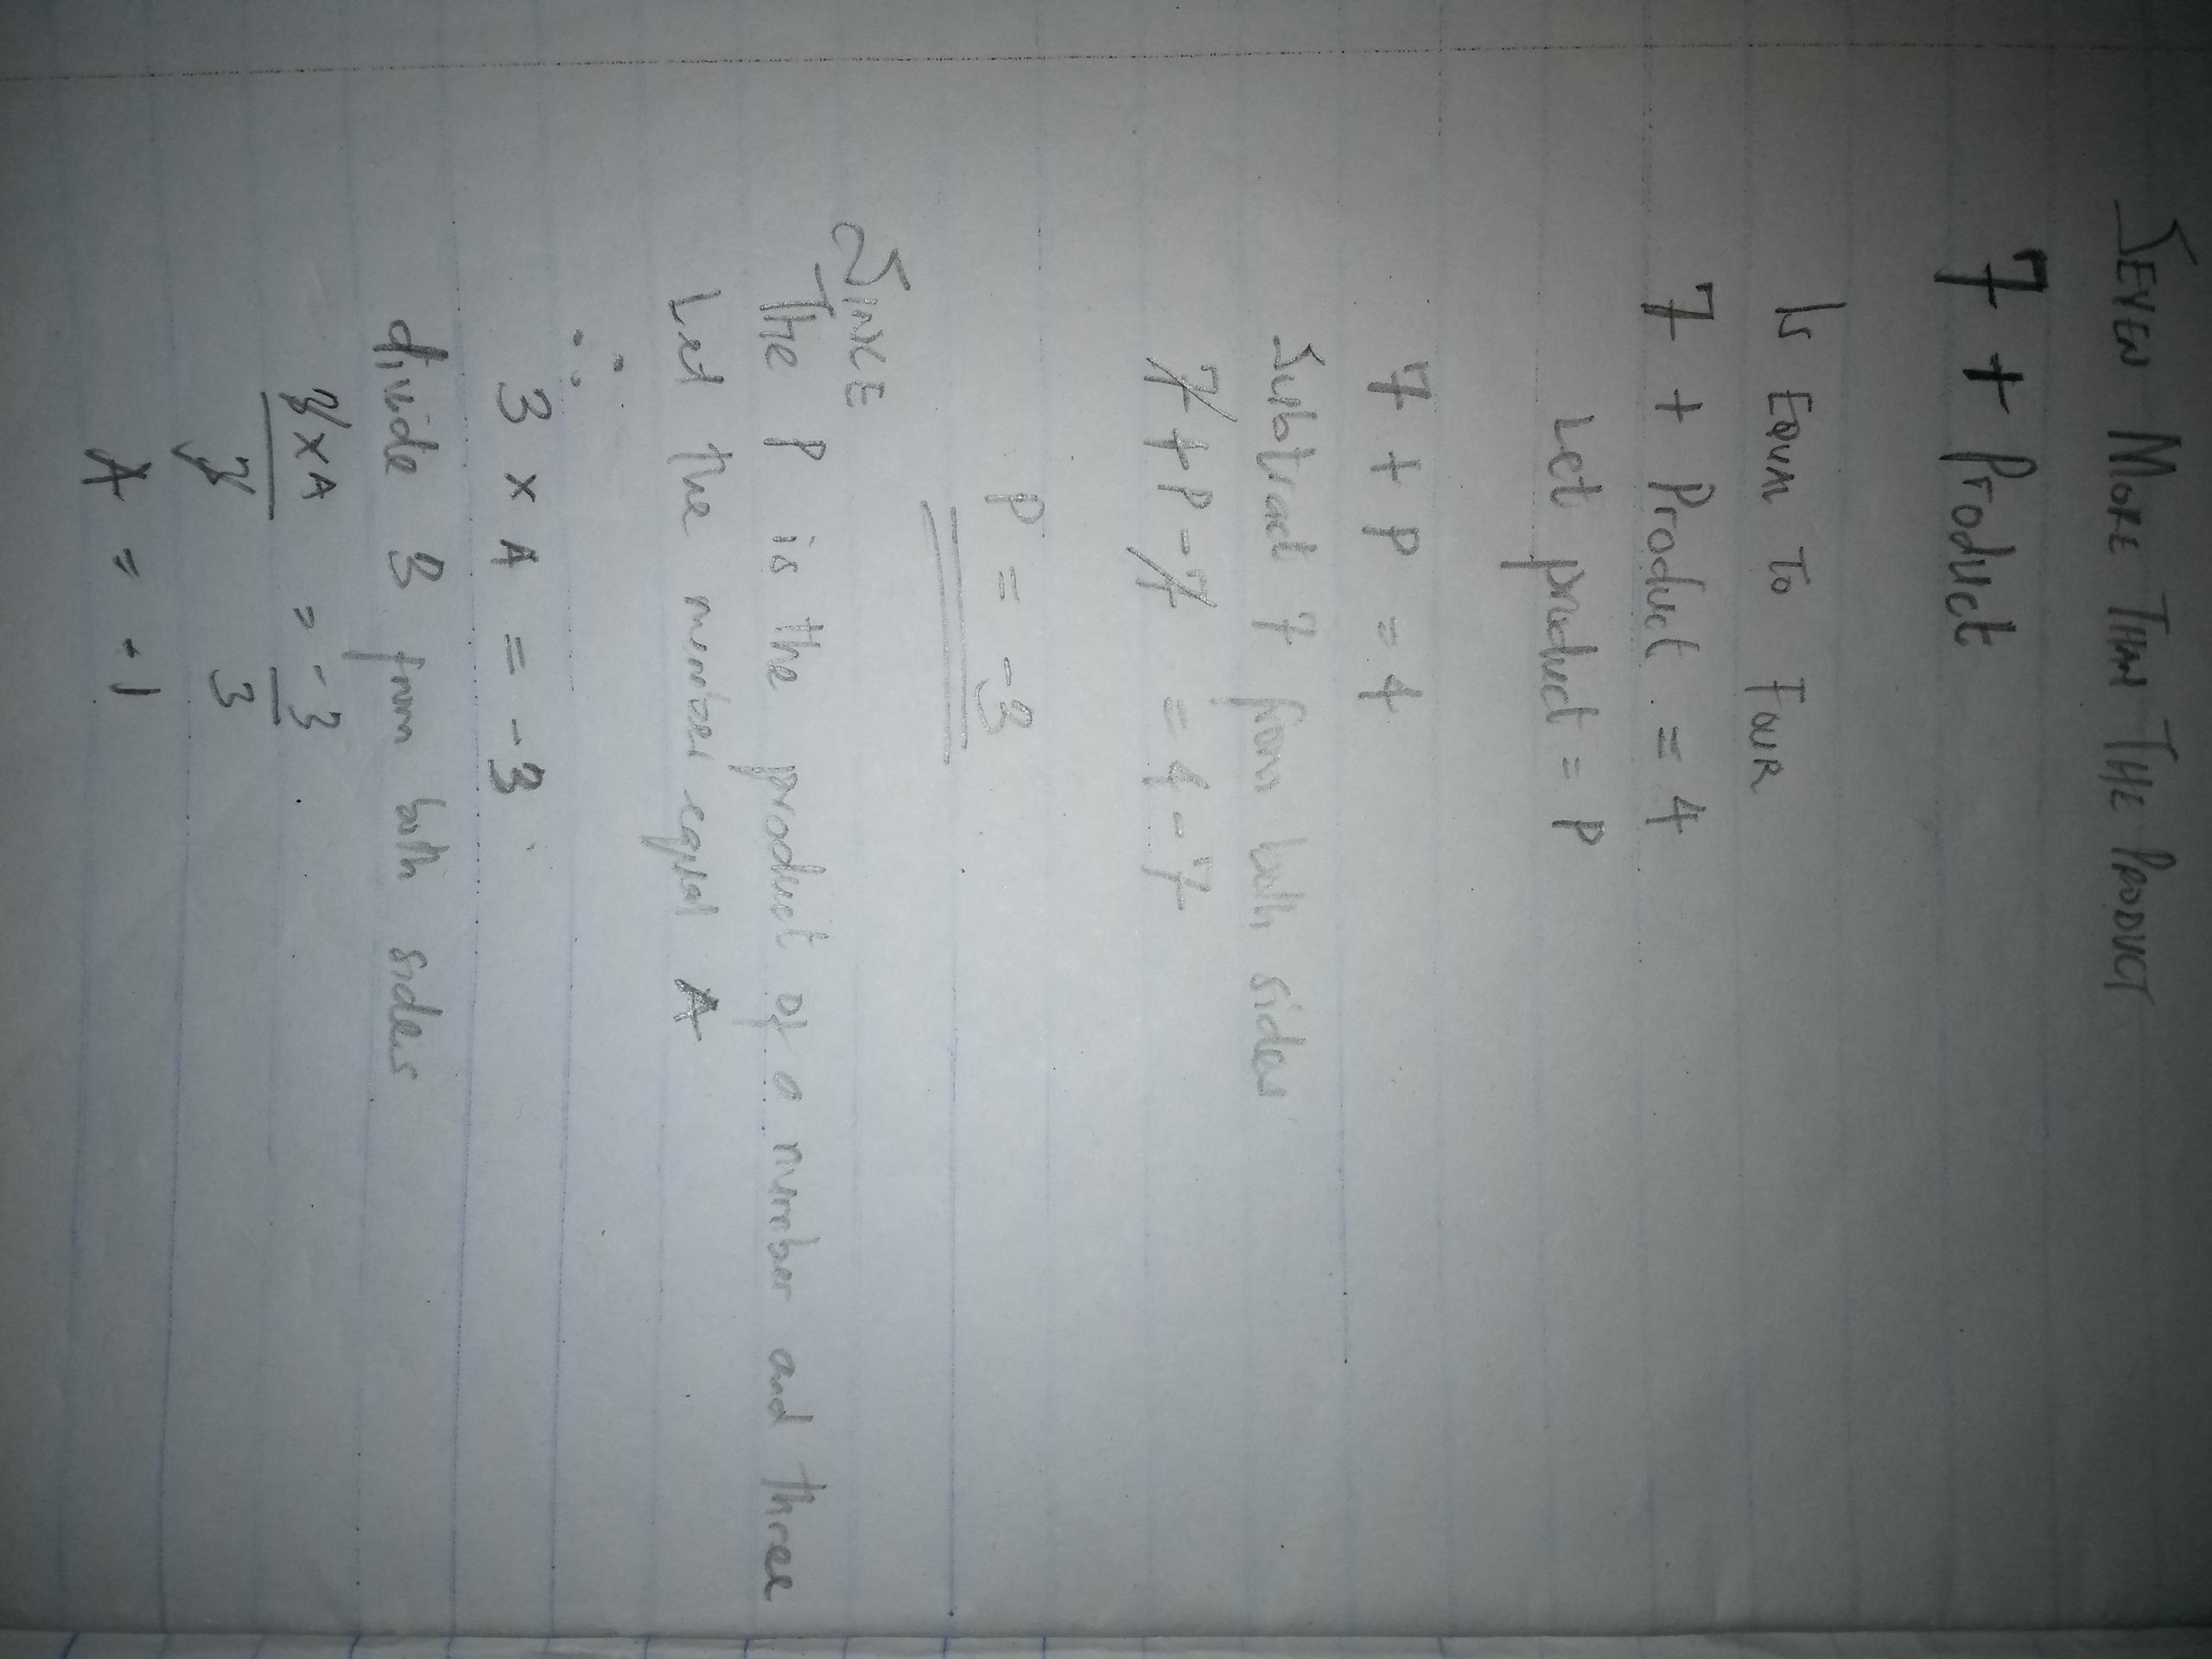 SEVEN MORE THAN THE PRODUCT
7 + Product
Is EQUAL TO FOUR
7 + Product = 4
Let product = P
7 + P = 4
Subtract 7 from both sides
7 + P - 7 = 4 - 7
P = -3
SINCE
The P is the product of a number and three
Let the number equal A
∴
3 x A = -3
divide 3 from both sides
3 x A = -3
3 3
A = -1